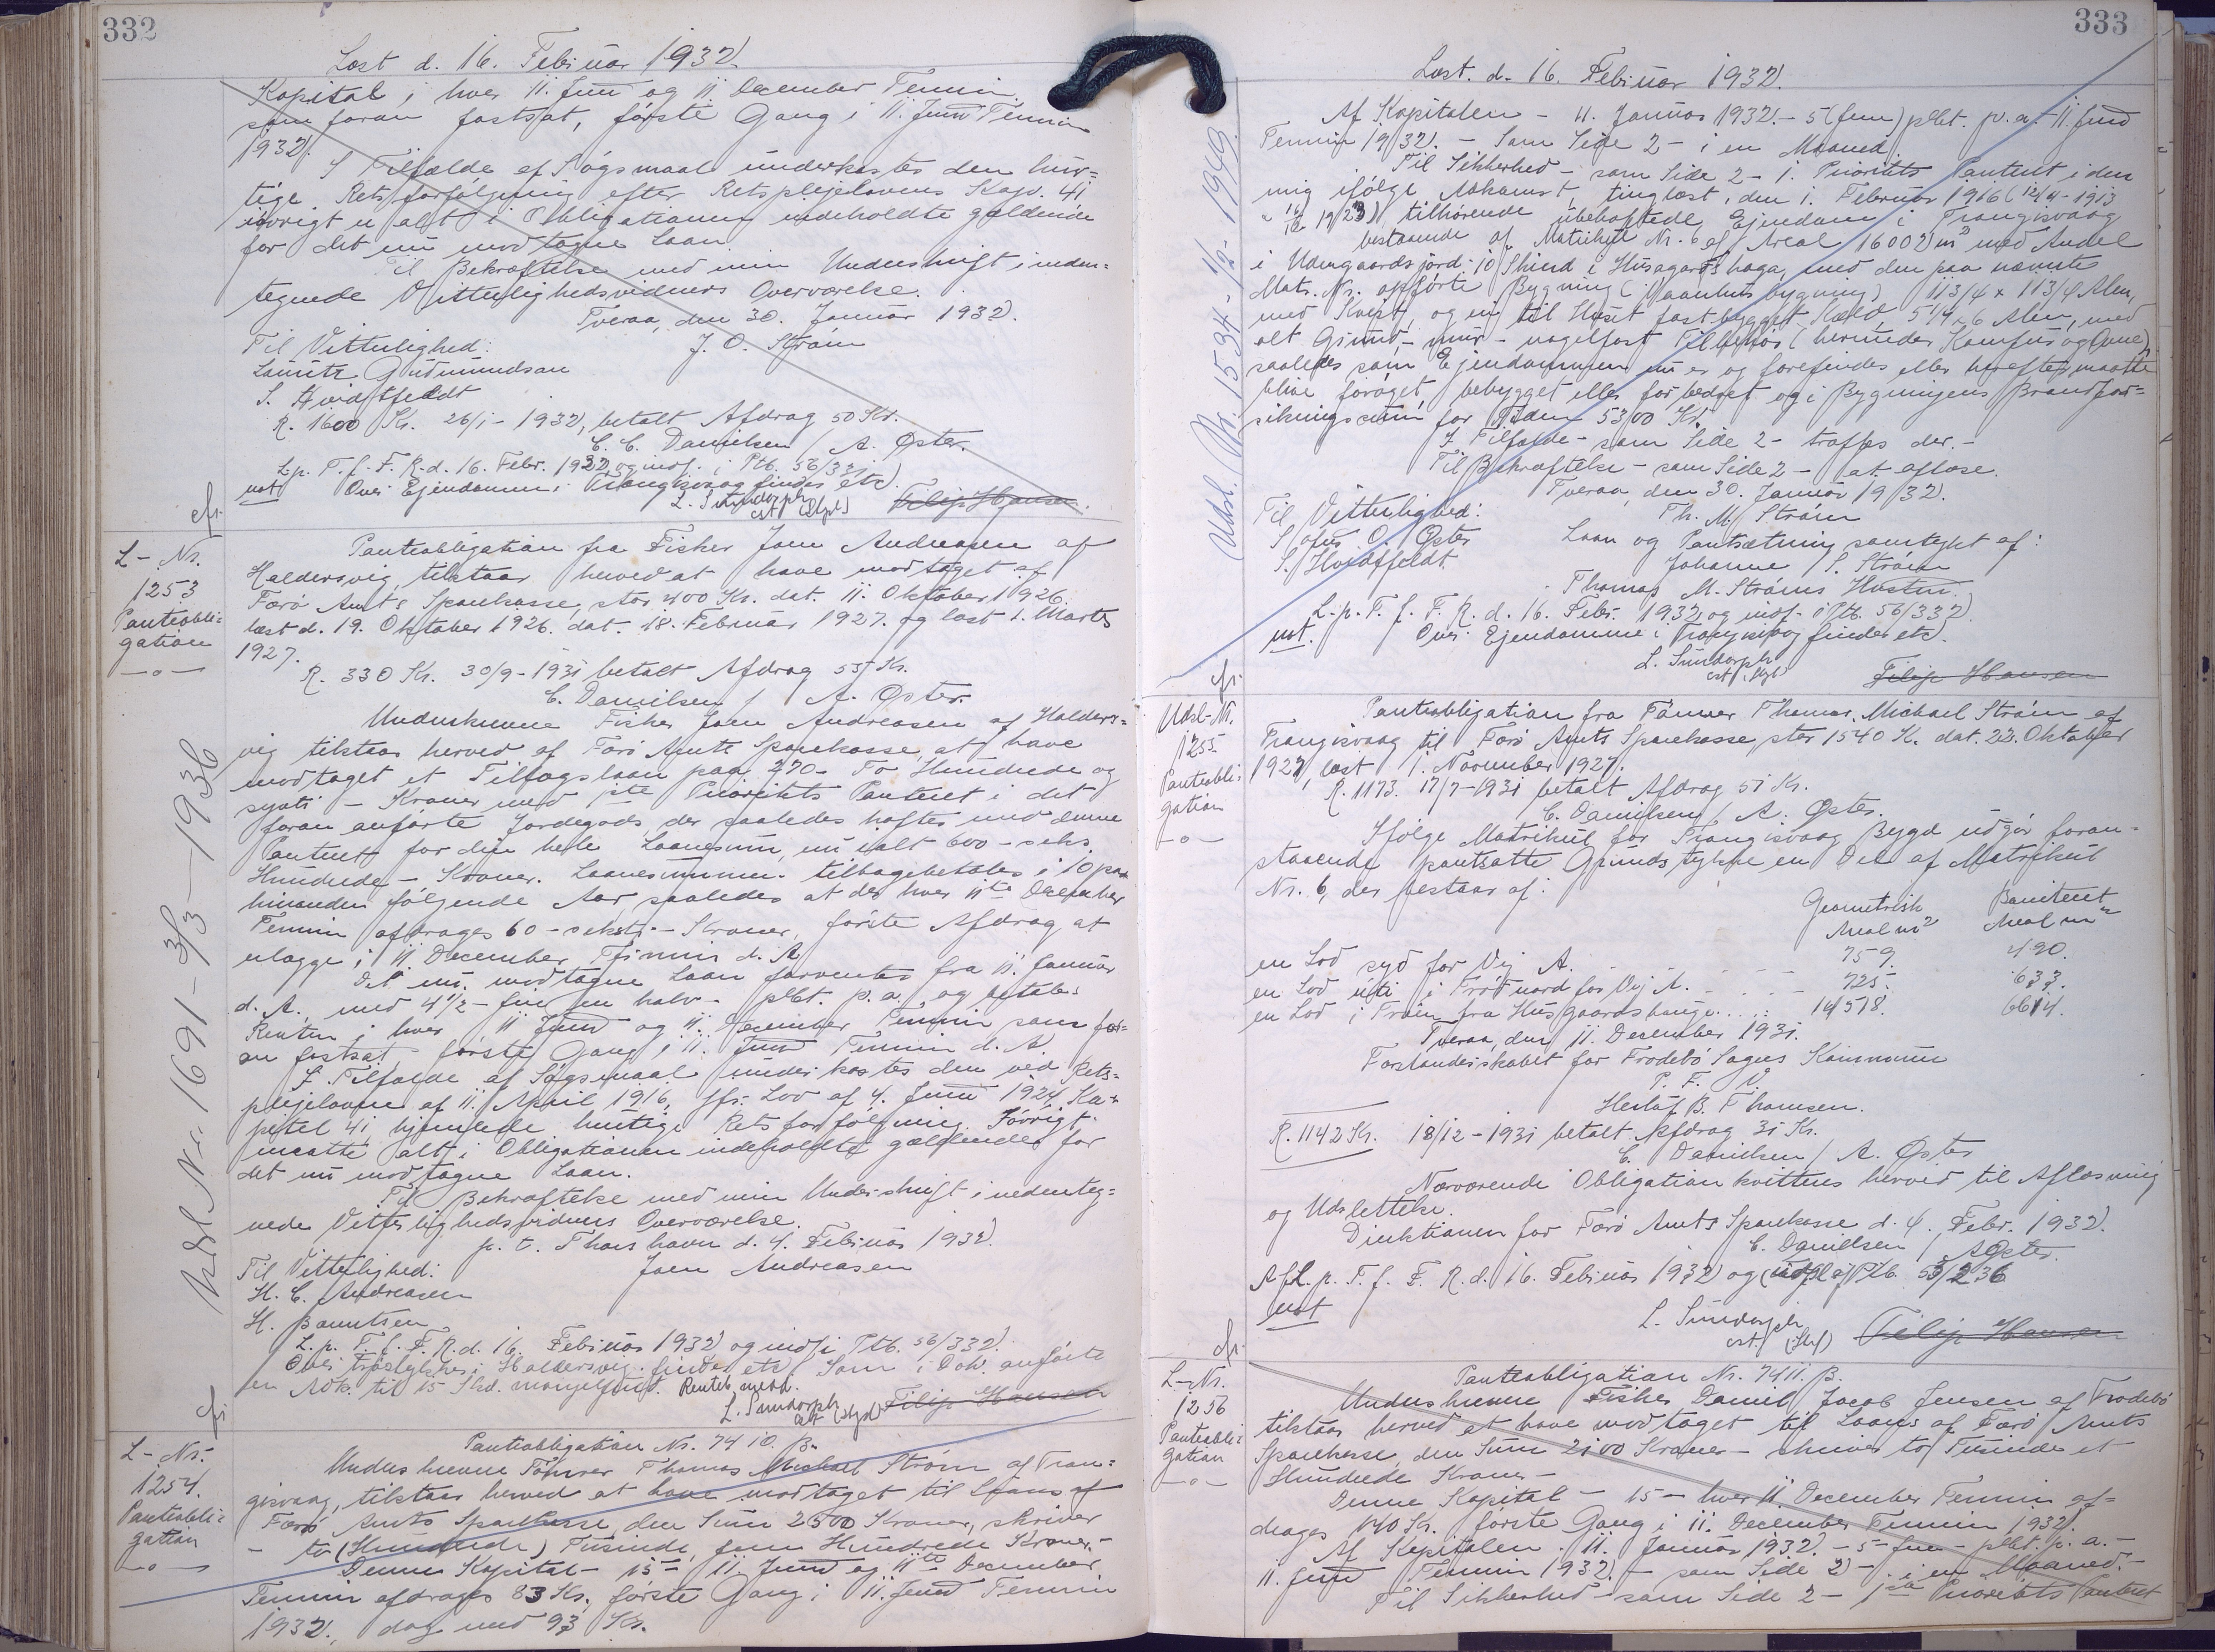 332
Læst d. 16. Februar 1932.
Kapital i hver 11. Juni og 11 December Termin,
som foran fastsat, første Gang i 11. Juni Termin
1932.
I Tilfælde af Søgsmaal underkastes den hur=
tige Retsforfølgning efter Retsplejelovens Kap. 41
iøvrigt er alt i Obligationen indeholdte gældende
for det nu modtagne Laan.
Til Bekræftelse med min Underskrift i neden=
tegnede Vitterlighedsvidners Overværelse.
Tveraa, den 30. Januar 1932.
Til Vitterlighed: J. O. Strøm
Lauritz Gudmundsen
S. Hvidtfeldt
R. 1600 Kr. 26/1 - 1932, betalt Afdrag 50 Kr.
C. C. Danielsen / A. Øster.
L.p. T. f. F. R. d. 16. Febr. 1932 og indf. i Ptb. 56/332.
not Over Ejendomme i Trangisvaag findes etc.
L. Sundorph
cst (Stpl) Filip Hansen
cfr.
L-Nr.
1253
Panteobli=
gation
-o-
Panteobligation fra Fisker Joen Andreasen af
Haldersvig, tilstaar herved at have modtaget af
Færø Amts Sparekasse, stor 400 Kr. dat. 11. Oktober 1926.
læst d. 19. Oktober 1926. dat. 18. Februar 1927. og læst 1. Marts
1927.
R. 330 Kr. 30/9 - 1931 betalt Afdrag 55 Kr.
C. Danielsen / A. Øster.
Underskrevne Fisker Joen Andreasen af Halders=
vig tilstaar herved af Færø Amts Sparekasse, at have
modtaget et Tillægslaan paa 270 - To Hundrede og
syvti - Kroner med 1ste Prioritets Panteret i det
foran anførte Jordegods, der saaledes hæfter med denne
Panteret for den hele Laanesum, nu ialt 600 - seks
Hundrede - Kroner. Laanesummen tilbagebetales i 10 paa
hinanden følgende Aar, saaledes at der hver 11te December
Termin afdrages 60 - seksti - Kroner, første Afdrag at
erlægge i 11 December Termin d. A.
Det nu modtagne Laan forrentes fra 11. Januar
d. A. med 4 1/2 - fire en halv - pCt. p. a. og betales
Renten i hver 11 Juni og 11. December Termin som for=
an fastsat, første Gang i 11. Juni Termin d. A.
I Tilfælde af Søgsmaal underkastes den ved Rets=
plejeloven af 11. April 1916, jfr. Lov af 4. Juni 1924, Ka=
pitel 41, hjemlede hurtige Retsforfølgning. Iøvrigt
maatte alt i Obligationen indeholdte gældende for
det nu modtagne Laan.
Til Bekræftelse med min Underskrift i nedenteg=
nede Vitterlighedsvidners Overværelse.
p. t. Thorshavn d. 4. Februar 1932.
Til Vitterlighed: Joen Andreasen
H. C. Andreasen
H. Berentsen
L. p. T. f. F. R. d. 16. Februar 1932 og indf. i Ptb. 56/332.
Over Træstykker i Haldersvig findes etc. Som i Dok. anførte
er Adk. til 15 Skd. mangelfuld. Renteb. medd.
L. Sundorph
cst (Stpl) Filip Hansen
Udsl. Nr. 1691 - 3/3 - 1936
cfr.
L-Nr.
1254.
Panteobli=
gation
-o-
Panteobligation Nr. 7410. B.
Underskrevne Tømrer Thomas Michael Strøm af Tran=
gisvaag, tilstaar herved at have modtaget til Laans af
Færø Amts Sparekasse den Sum 2500 Kroner, skriver
- to (Hundrede) Tusinde, fem Hundrede Kroner, -
Denne Kapital - 15 - 11. Juni og 11te December
Termin afdrages 83 Kr. første Gang i 11. Juni Termin
1932, dog med 93 Kr.
333
Læst. d. 16. Februar 1932.
Af Kapitalen - 11. Januar 1932. - 5 (fem) pCt. p. a. - 11. Juni
Termin 1932. - Som Side 2 - i en Maaned.
Til Sikkerhed - som Side 2 - 1. Prioritets Panteret i den
mig ifølge Adkomst, tinglæst, den 1. Februar 1916 (12/4 - 1913
1923) tilhørende ubehæftede Ejendom i Trangisvaag
bestaaende af Matrikul Nr. 6 af Areal 16002 m² med Andel
i Udengaardsjord: 10 Skind i Husagards haga, med den paa nævnte
Matr. Nr. opførte Bygning (Vaanhusbygning) 11 3/4 x 11 3/4 Alen,
med Kvist, og en til Huset fast bygget Kæld, 5 1/4 x 6 Alen, med
alt Grund - mur - nagelfast Tilbehør (herunder Komfur og Ovne),
saaledes som Ejendommen nu er og forefindes eller herefter maatte
blive forøget, bebygget eller forbedret og i Bygningens Brandfor=
sikringssum for Tiden 5300 Kr.
I Tilfælde - som Side 2 - træffes der. -
Til Bekræftelse - som Side 2 - at aflæse.
Tveraa, den 30. Januar 1932.
Til Vitterlighed: Th. M. Strøm
Sofus O. Øster Laan og Pantsætning samtykt af:
S. Hvidtfeldt Johanne S. Strøm
Thomas M. Strøms Hustru.
L. p. T. f. F. R. d. 16. Febr. 1932 og indf. i Ptb. 56/332
not. Over Ejendomme i Trangisvaag findes etc.
L. Sundorph
cst (Stpl) Filip Hansen
Udsl. Nr. 1534 - 1/2 - 1949.
cfr.
Udsl-Nr.
1255.
Panteobli=
gation
-o-
Panteobligation fra Tømrer Thomas Michael Strøm af
Trangisvaag til Færø Amts Sparekasse, stor 1540 K. dat. 22. Oktober
1927, læst 1. November 1927.
R. 1173. 17/7 - 1931 betalt Afdrag 51 Kr.
C. Danielsen / A. Øster.
Ifølge Matrikul for Trangisvaag Bygd udgør foran=
staaende pantsatte Grundstykke en Del af Matrikul
Nr. 6, der bestaar af:
Geometrisk Boniteret
Areal m² Areal m²
en Lod syd for Vej A. 759. 490.
en Lod uti i Trøð nord for Vej A. 725. 633.
en Lod i Trøin fra Husgaardshauge 14518. 6614.
Tveraa, den 11. December 1931.
Forstanderskabet for Frodebø Sogns Kommune
P. F. V.
Herluf B. Thomsen.
R. 1142 Kr. 18/12 - 1931 betalt Afdrag 31 Kr.
C. Danielsen / A. Øster
Nærværende Obligation kvitteres herved til Aflæsning
og Udslettelse.
Direktionen for Færø Amts Sparekasse d. 4. Febr. 1932.
C. Danielsen / A Øster.
Afl. p. T. f. F. R. d. 16. Februar 1932 og udsl. af Ptb. 53/236
not
L. Sundorph
cst. (Stpl) Filip Hansen
cfr.
L-Nr.
1256
Panteobli=
gation
-o-
Panteobligation Nr. 7411. B.
Underskrevne Fisker Daniel Jacob Jensen af Frodebø
tilstaar herved at have modtaget til Laans af Færø Amts
Sparekasse, den Sum 2100 Kroner - skriver to Tusinde et
Hundrede Kroner -
Denne Kapital - 15 - hver 11. December Termin af=
drages 140 Kr. første Gang i 11. December Termin 1932.
Af Kapitalen - 11. Januar 1932. - 5 - fem - pCt. p. a. -
11. Juni Termin 1932. - som Side 2 - i en Maaned. -
Til Sikkerhed - som Side 2 - 1ste Prioritets Panteret